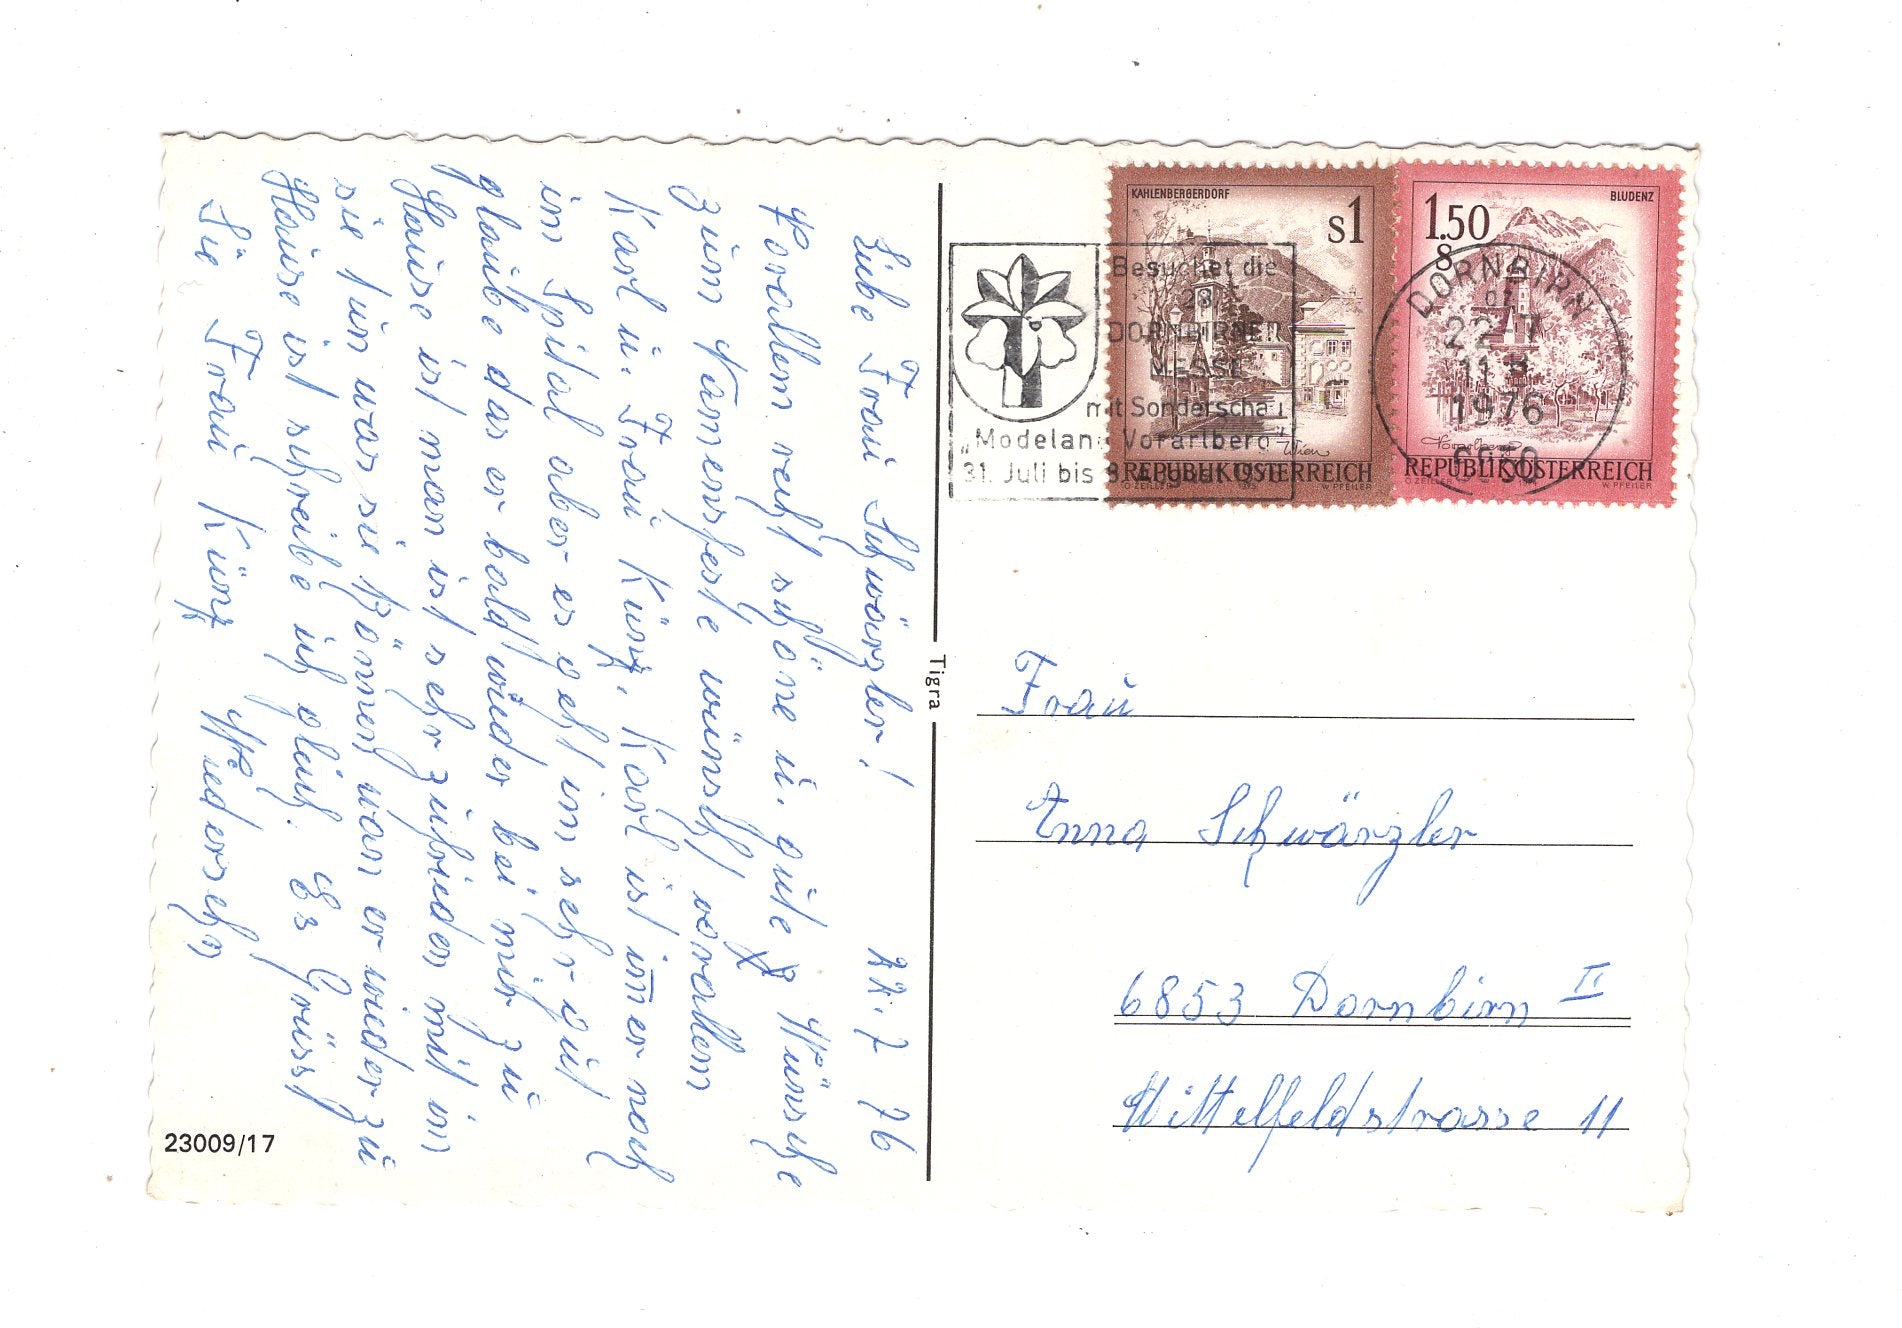 Liebe Frau Schwärzler!
22.7 76
Vorallem recht schöne u. gute Wünsche
zum Namensfeste wünscht vorallem
Karl u. Frau Künz, Karl ist im̅er noch
im Spital aber es geht im sehr gut
glaube das er bald wieder bei mir zu
Hause ist man ist sehr zufrieden mit im
sie tun was sie können, wan er wieder zu
Hause ist schreibe ich gleich. Es Grüsst
Sie Frau Künz Wiedersehn
23009/17
Tigra
KAHLENBERGERDORF
S1
Wien
REPUBLIK ÖSTERREICH
O. ZEILLER
W. PFEILER
1.50
BLUDENZ
Vorarlberg
REPUBLIK ÖSTERREICH
O. ZEILLER
W. PFEILER
Besuchet die
28.
DORNBIRNER
MESSE
mit Sonderschau
„Modeland Vorarlberg"
31. Juli bis 8. August 1976
8
DORNBIRN
22.-7
11
1976
6850
Frau
Anna Schwärzler
6853 Dornbirn II
Mittelfeldstrasse 11